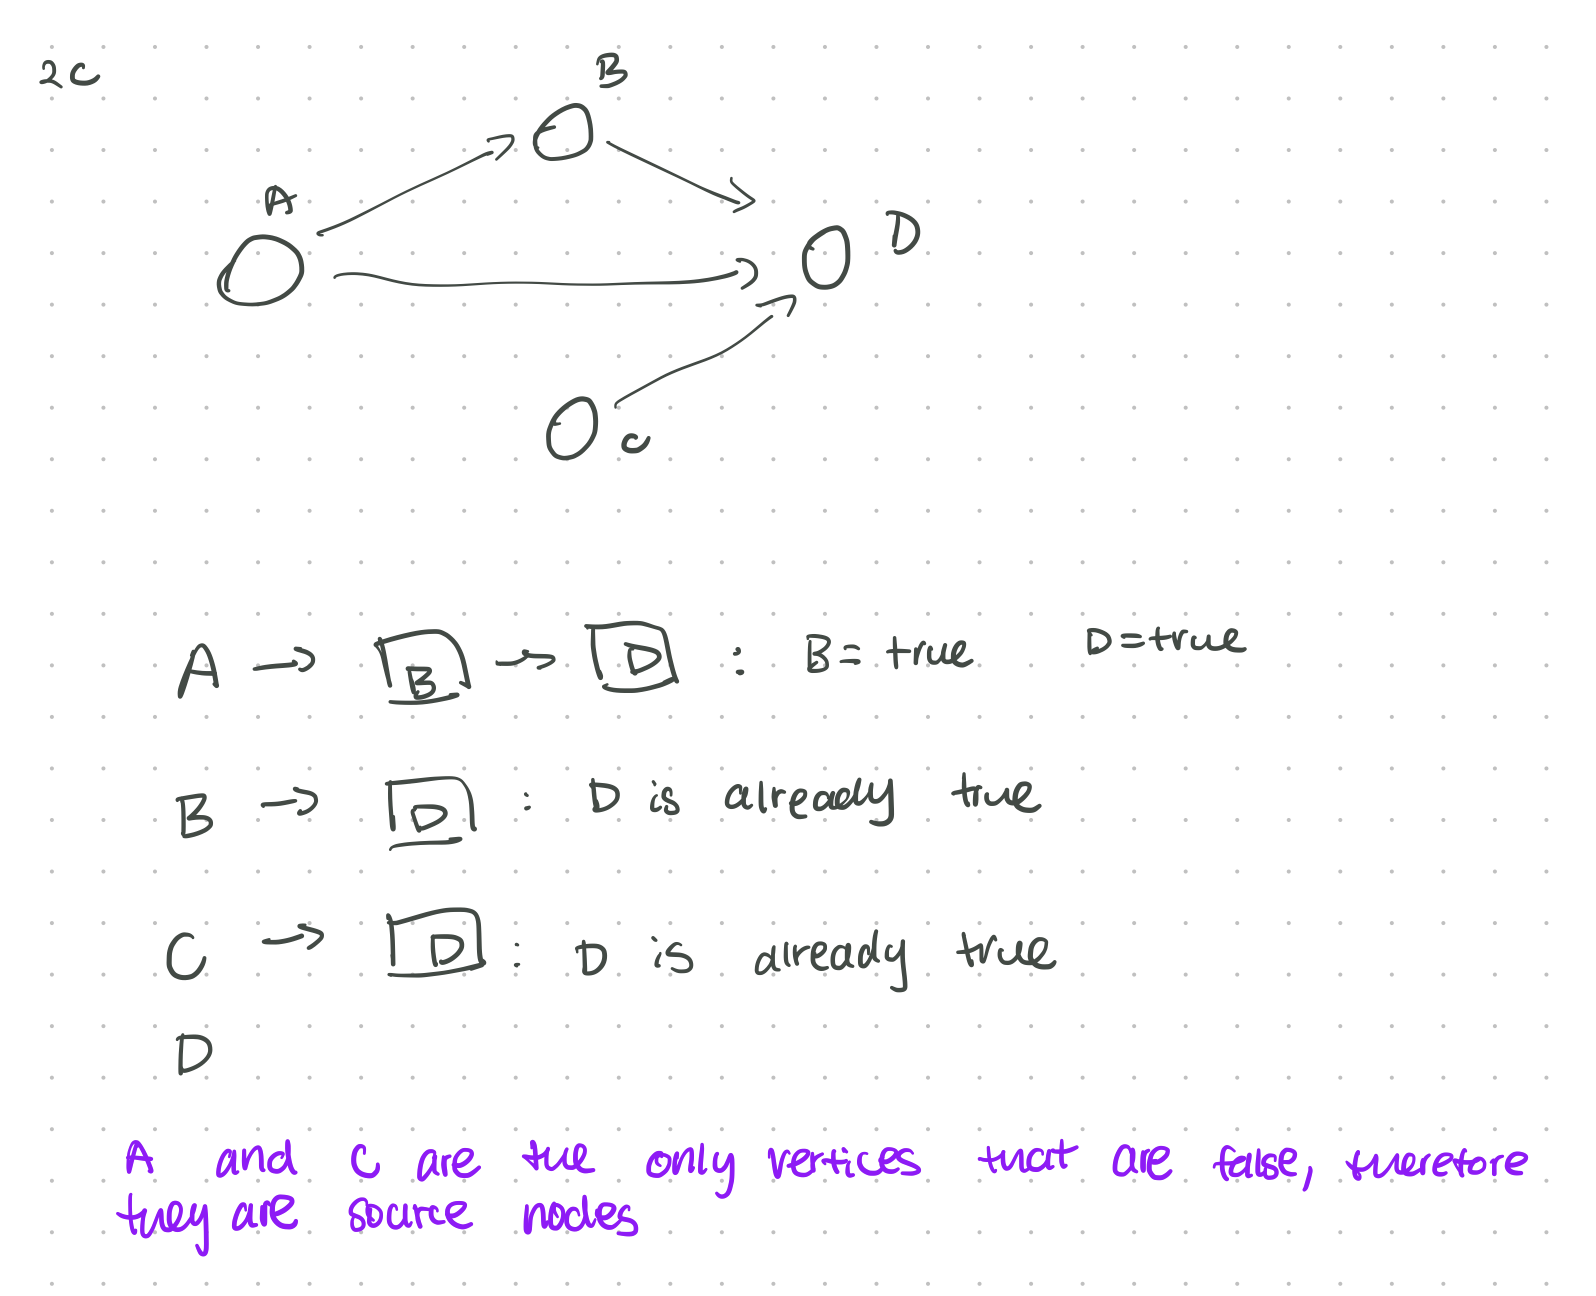 2C
B
A
D
C
A → B → D : B = true D = true
B → D : D is already true
C → D : D is already true
D
A and C are the only vertices that are false, therefore
they are source nodes